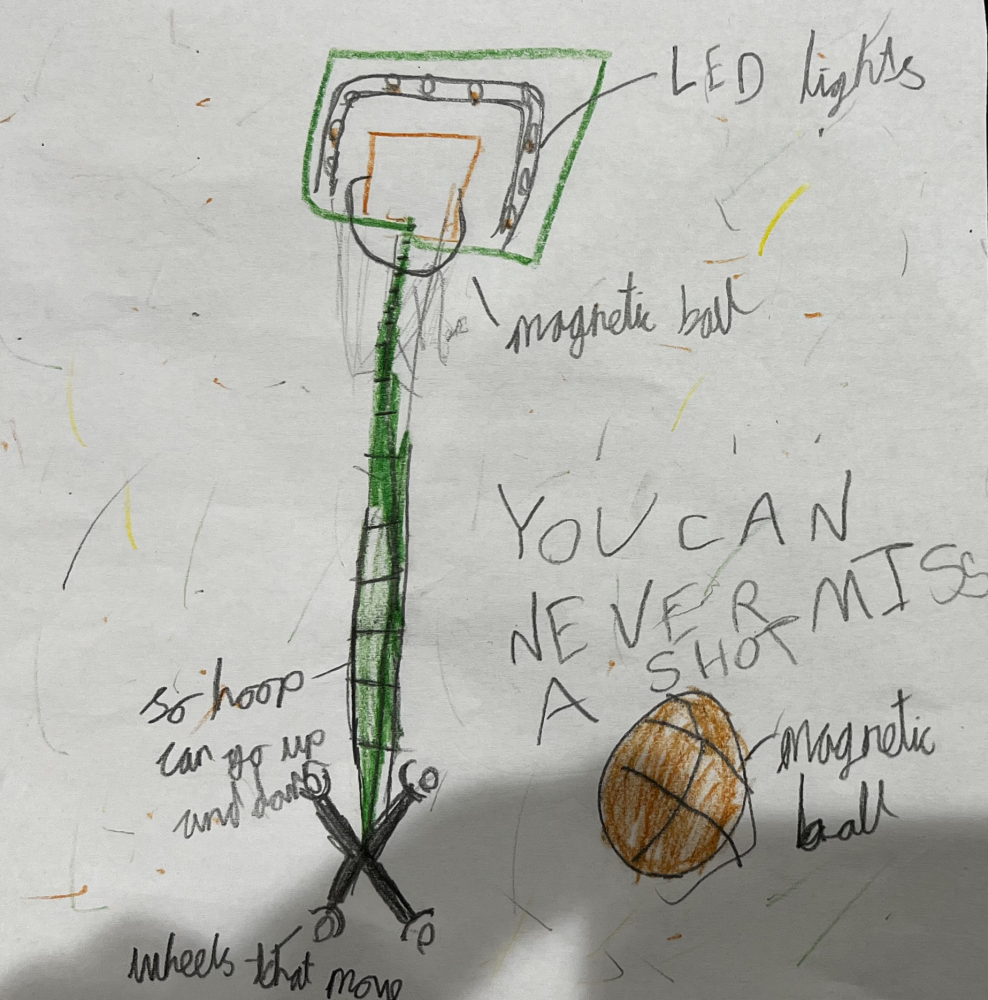 LED lights
magnetic ball
YOU CAN
NEVER MISS
A SHOT
so hoop
can go up
and down
magnetic
ball
wheels that move